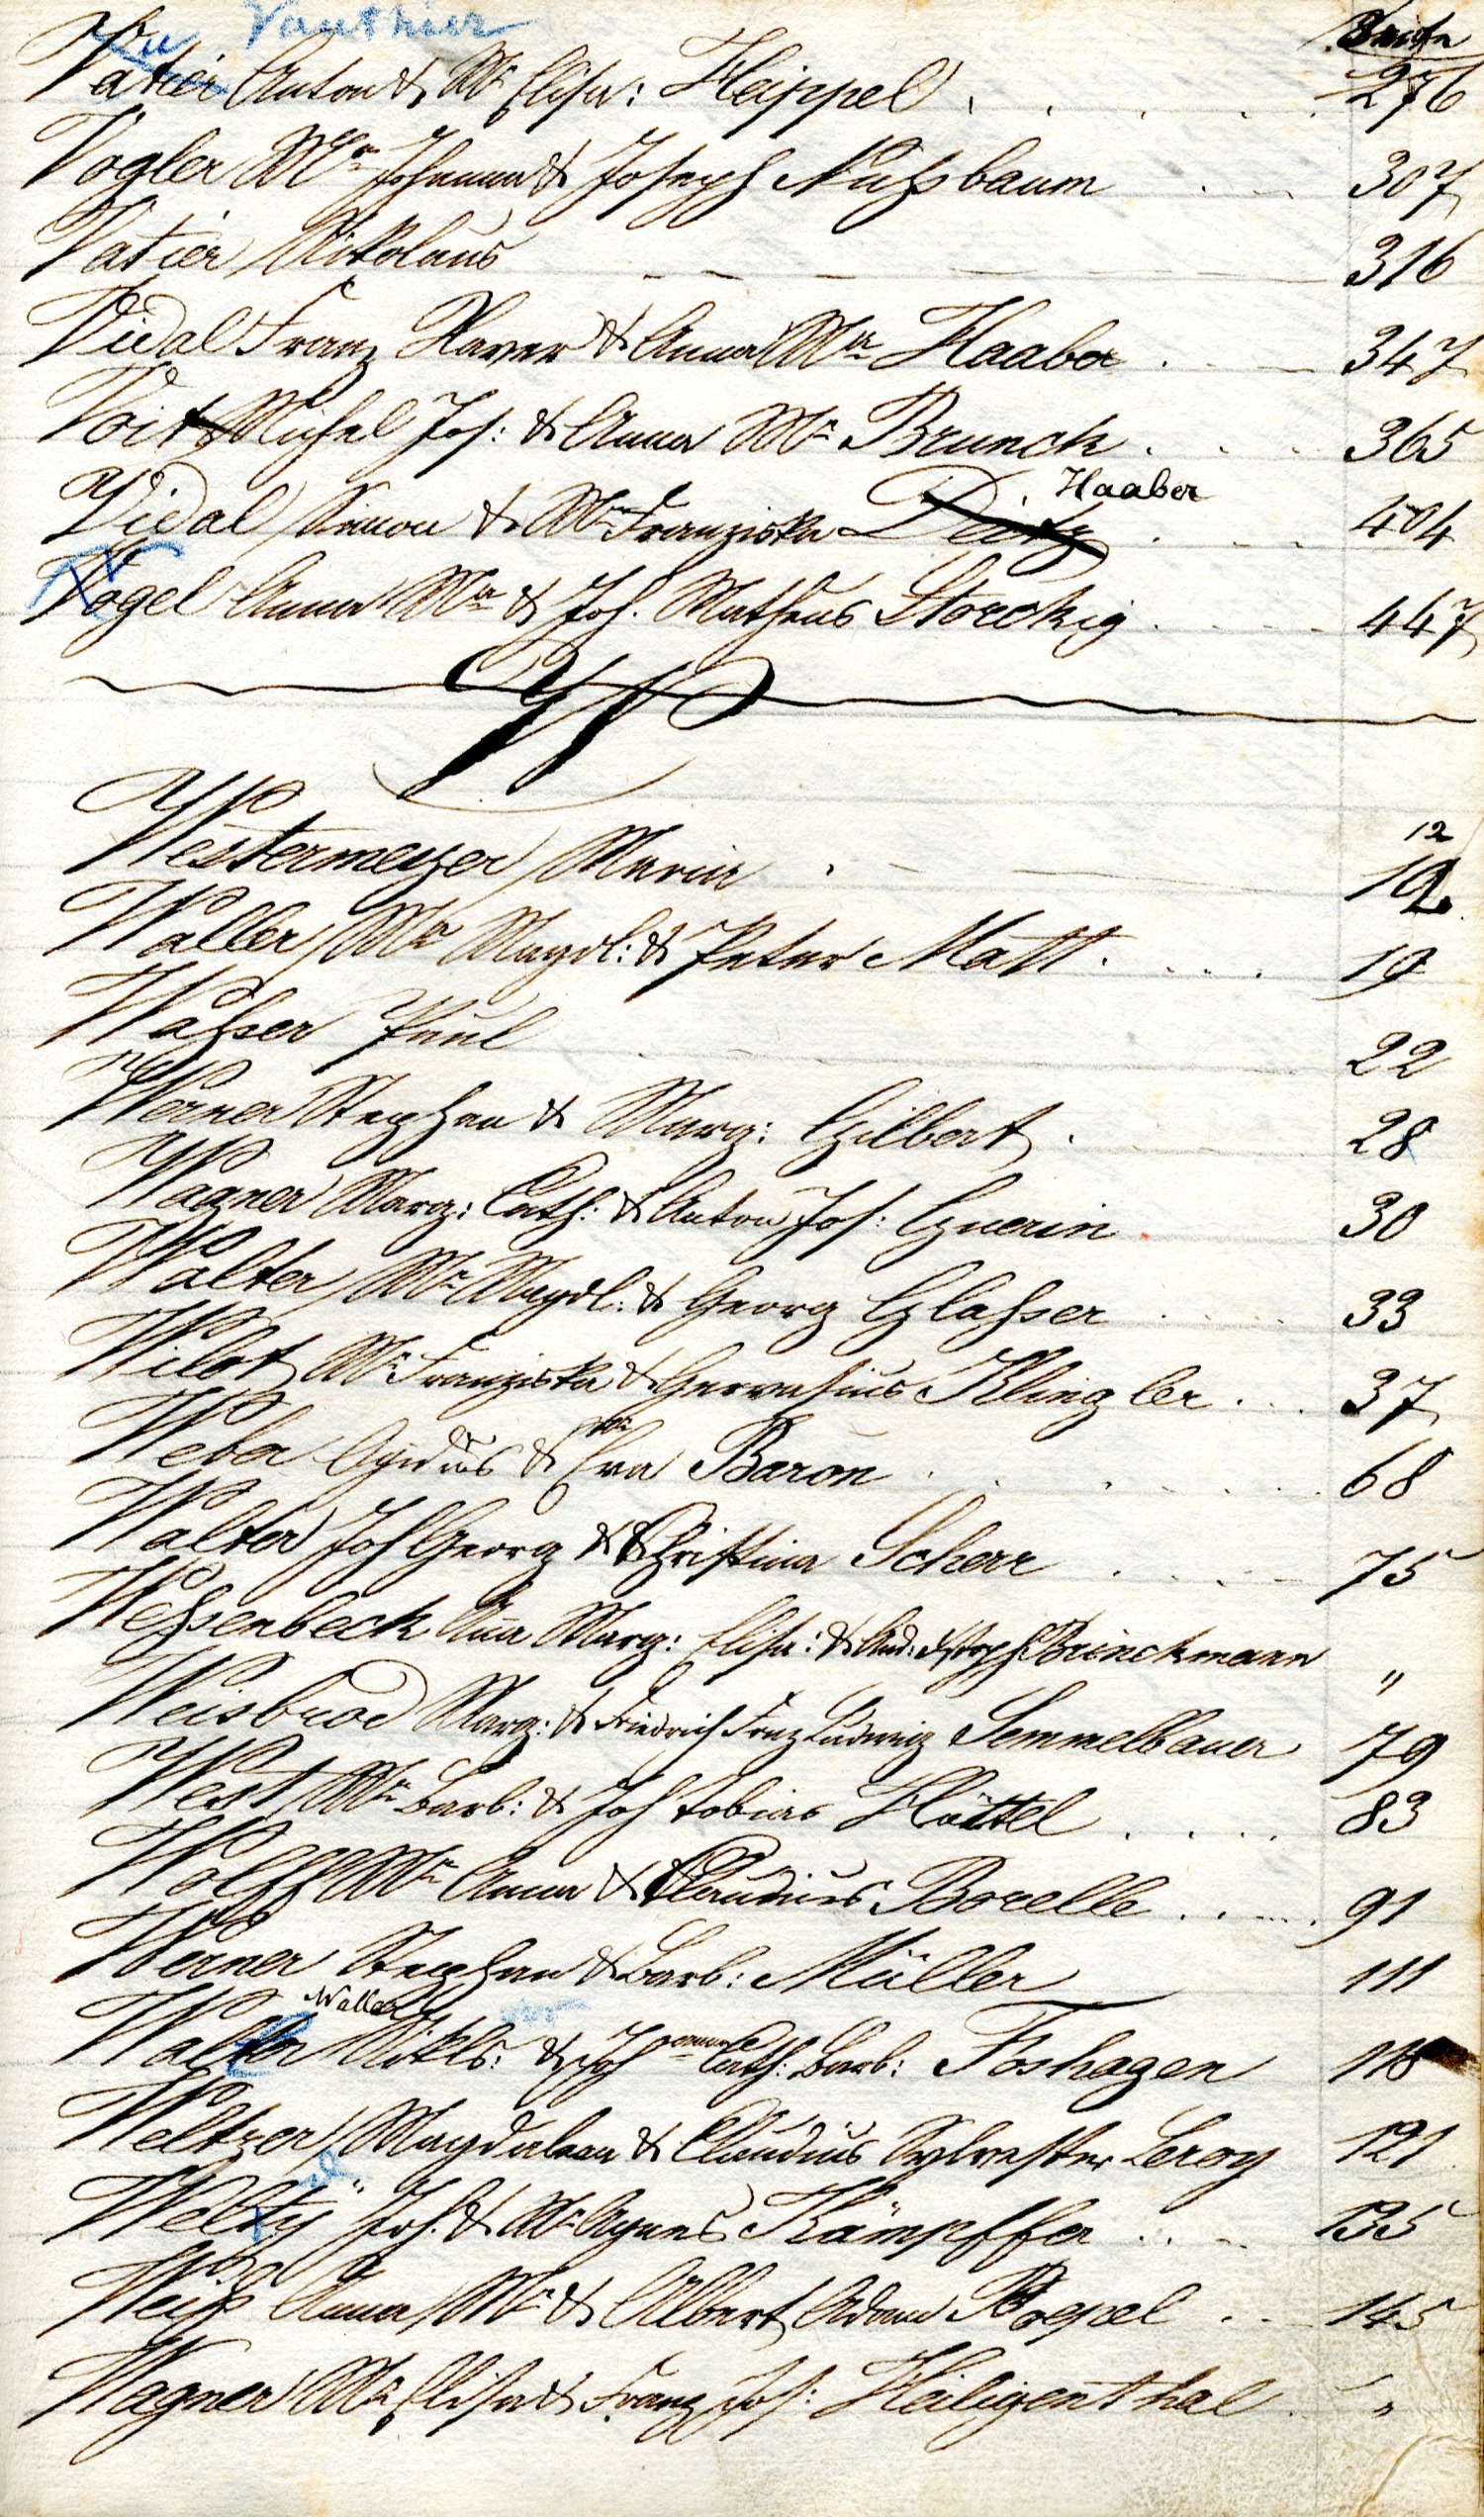 Vauthier
Seite
Vatier Anton & Mr Elisa: Heippel . . . . 276
Vogler Mr Johanna & Joseph Nußbaum . . . 307
Vatier Nikolaus — — — 316
Vidal Franz Xaver & Anna Mr Haaber . . — 347
Voit Michel Jos: & Anna Mr Brunck . . . 365
Haaber
Vidal Simon & Mr Franziska Deitz . . . 404
Vogel Anna Mr & Joh. Matheus Storckig . . . 447
W
12
Westermeyer Maria . — — 12
Waller Mr Magdl: & Peter Matt . . . . 19
Waßer Paul 22
Werner Stephan & Marg: Gilbert . . . 28
Wagner Marg: Cath: & Anton Jos: Guerin 30
Walter Mr Magdl: & Georg Glaßer . . . 33
Wilot Mr Franziska & Gervasius Klingler . . . 37
Weber Egidius & Mr Eva Baron . . . . 68
Walter Joh Georg & Christina Scherr . . . 75
Weßenbeck Ana Marg: Elisa: & And: Brinckmann "
Weisbrod Marg: & Friedrich Franz Ludwig Semmelbauer 79
West Mr Barb: & Joh Tobias Hättel . . . . 83
Wolff Mr Anna & Claudius Borelle . . . . 91
Werner Stephan & Barb: Müller 111
Waller
Walter Nikls: & Johanna Cath: Barb: Foshagen 118
Weltzer Magdalena & Claudius Sylvester Leroy 121
Welty Joh. & Mr Agnes Kämpffer . . . 135
Weiß Anna Mr & Albert Adam Poepel . . 145
Wagner Mr Elisa & Franz Jos: Heiligenthal . "